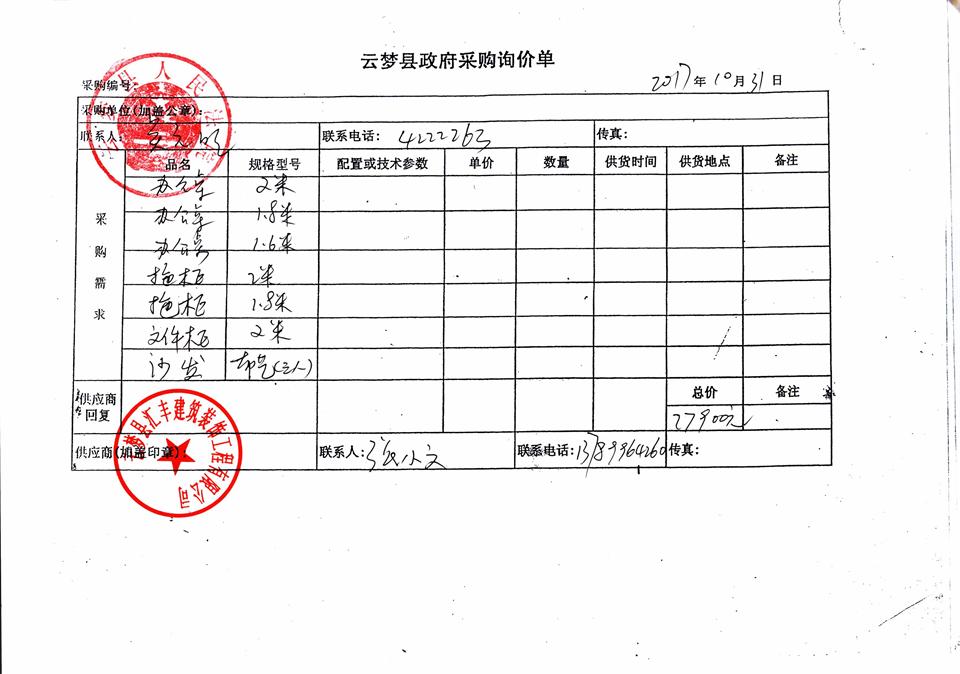 云梦县政府采购询价单
采购编号: 2017年10月31日
采购单位(加盖公章):
县人民法
联系人: 联系电话: 4222263 传真:
采购需求 品名 规格型号 配置或技术参数 单价 数量 供货时间 供货地点 备注
办公桌 2米
办公桌 1.8米
办公桌 1.6米
拖柜 2米
拖柜 1.8米
文件柜 2米
沙发 (三人)
供应商回复 总价 备注
27900元
供应商(加盖印章): 联系人: 张小文 联系电话: 13789964260 传真:
云梦县汇丰建筑装饰工程有限公司